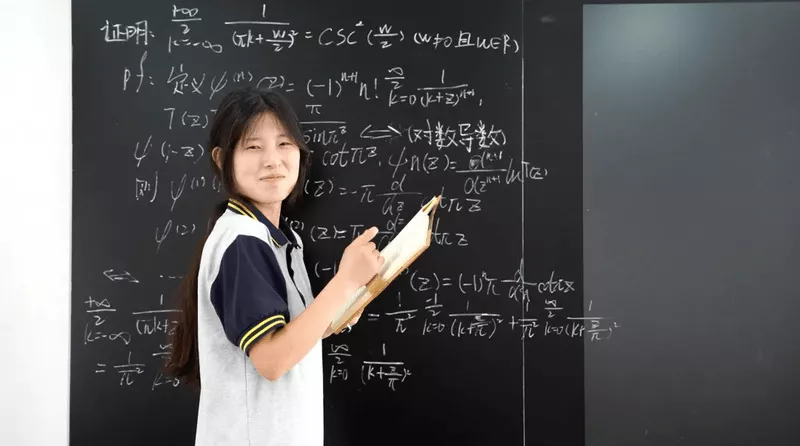 证明: \sum_{k=-\infty}^{+\infty} \frac{1}{(\pi k+\frac{w}{2})^2} = CSC^2(\frac{w}{2}) (w≠0且w∈R)
pf: 定义 ψ^{(n)}(z) = (-1)^{n+1} n! \sum_{k=0}^{\infty} \frac{1}{(k+z)^{n+1}},
Γ(z) \frac{π}{sinπz} ⟺ (对数导数)
ψ(1-z) cotπz, ψ^n(z) = \frac{d^{(n+1)}}{dz^{n+1}} lnΓ(z)
则 ψ^{(1)}(1 (z) = -π \frac{d}{dz} πz
ψ^{(2)} (z) = π πz
⟺ ······ (-1 (z) = (-1)^n π \frac{d}{dn} cotπx
\sum_{k=-\infty}^{+\infty} \frac{1}{(πk+ = \frac{1}{π^2} \sum_{k=0}^{-1} \frac{1}{(k+\frac{z}{π})^2} + \frac{1}{π^2} \sum_{k=0}^{\infty} \frac{1}{(k+\frac{z}{π})^2}
= \frac{1}{π^2} \sum_{k=0}^{\infty} \sum_{k=0}^{\infty} \frac{1}{(k+\frac{z}{π})^2}